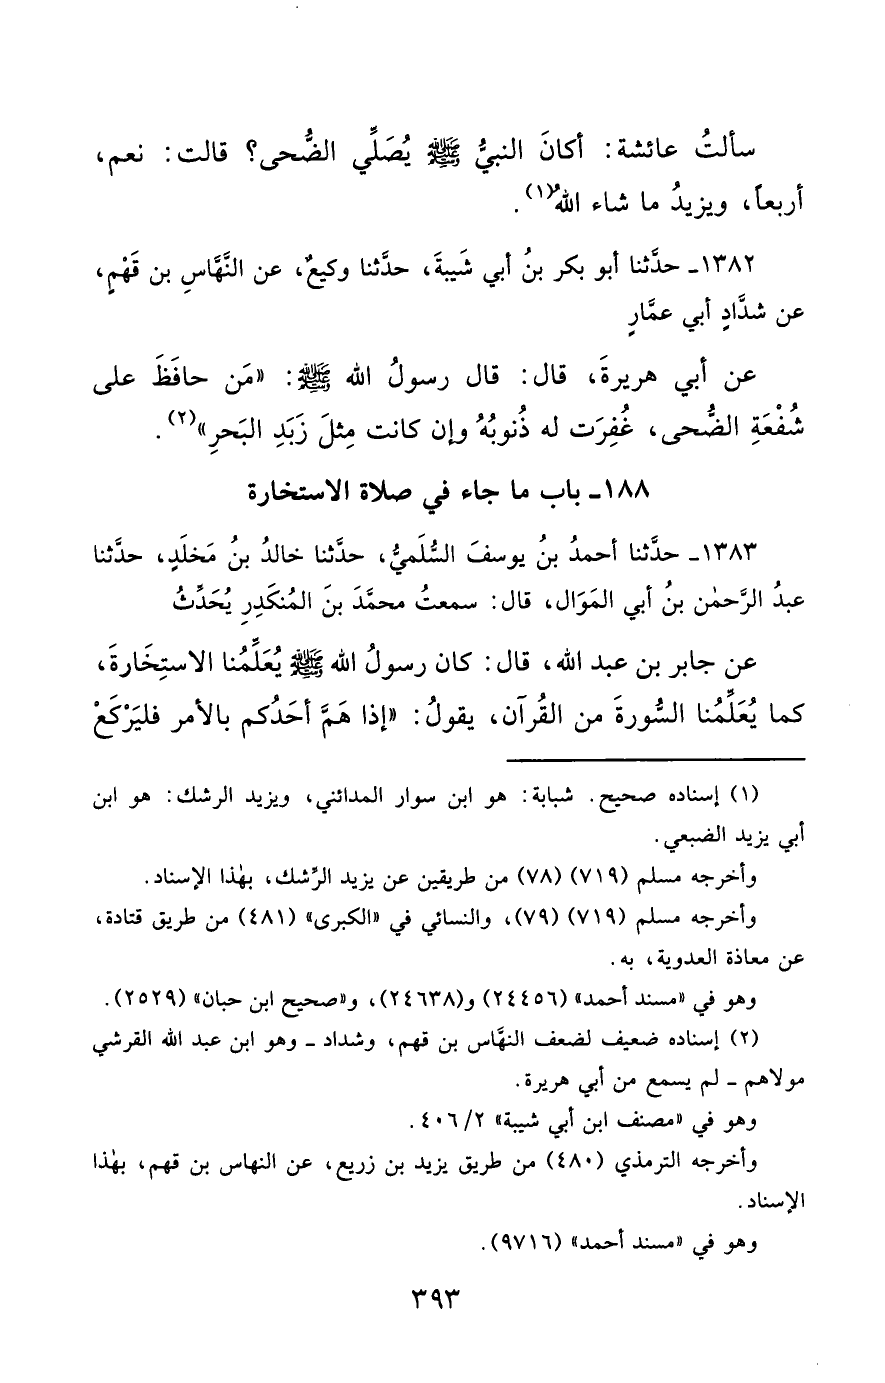 سألتُ عائشة: أكانَ النبيُّ ﷺ يُصَلِّي الضُّحى؟ قالت: نعم،
أربعاً، ويزيدُ ما شاء اللهُ(١).
١٣٨٢ـ حدَّثنا أبو بكر بنُ أبي شَيبةَ، حدَّثنا وكيعٌ، عن النَّهَّاسِ بن قَهْمٍ،
عن شدَّادٍ أبي عمَّارٍ
عن أبي هريرةَ، قال: قال رسولُ الله ﷺ: «مَن حافَظَ على
شُفْعَةِ الضُّحى، غُفِرَت له ذُنوبُهُ وإن كانت مِثلَ زَبَدِ البَحرِ»(٢).
١٨٨ـ باب ما جاء في صلاة الاستخارة
١٣٨٣ـ حدَّثنا أحمدُ بنُ يوسفَ السُّلَميُّ، حدَّثنا خالدُ بنُ مَخلَدٍ، حدَّثنا
عبدُ الرَّحمٰن بنُ أبي المَوَال، قال: سمعتُ محمَّدَ بنَ المُنكَدِرِ يُحَدِّثُ
عن جابر بن عبد الله، قال: كان رسولُ الله ﷺ يُعَلِّمُنا الاستِخَارةَ،
كما يُعَلِّمُنا السُّورةَ من القُرآن، يقولُ: «إذا هَمَّ أحَدُكم بالأمر فليَرْكَعْ
(١) إسناده صحيح. شبابة: هو ابن سوار المدائني، ويزيد الرشك: هو ابن
أبي يزيد الضبعي.
وأخرجه مسلم (٧١٩) (٧٨) من طريقين عن يزيد الرِّشك، بهٰذا الإسناد.
وأخرجه مسلم (٧١٩) (٧٩)، والنسائي في «الكبرى» (٤٨١) من طريق قتادة،
عن معاذة العدوية، به.
وهو في «مسند أحمد» (٢٤٤٥٦) و(٢٤٦٣٨)، و«صحيح ابن حبان» (٢٥٢٩).
(٢) إسناده ضعيف لضعف النهَّاس بن قهم، وشداد ـ وهو ابن عبد الله القرشي
مولاهم ـ لم يسمع من أبي هريرة.
وهو في «مصنف ابن أبي شيبة» ٢/ ٤٠٦.
وأخرجه الترمذي (٤٨٠) من طريق يزيد بن زريع، عن النهاس بن قهم، بهٰذا
الإسناد.
وهو في «مسند أحمد» (٩٧١٦).
٣٩٣